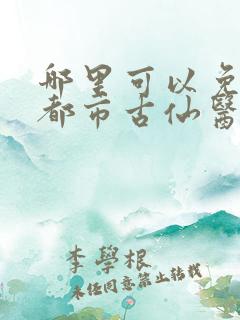 哪里可以免
都市古仙醫
李學根
未经同意禁止转载